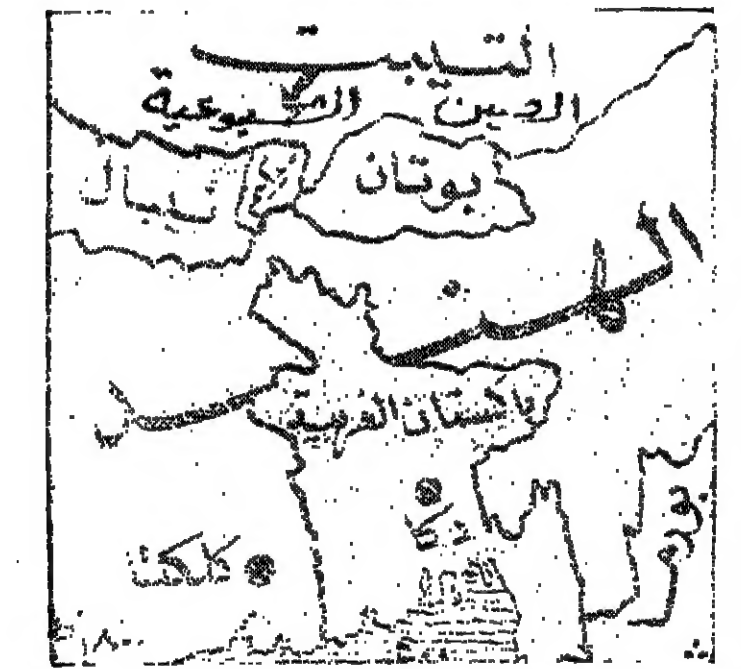 التيبت
الصين الشيوعية
نيبال
بوتان
الهند
باكستان الغربية
دكا
كلكتا
بورما